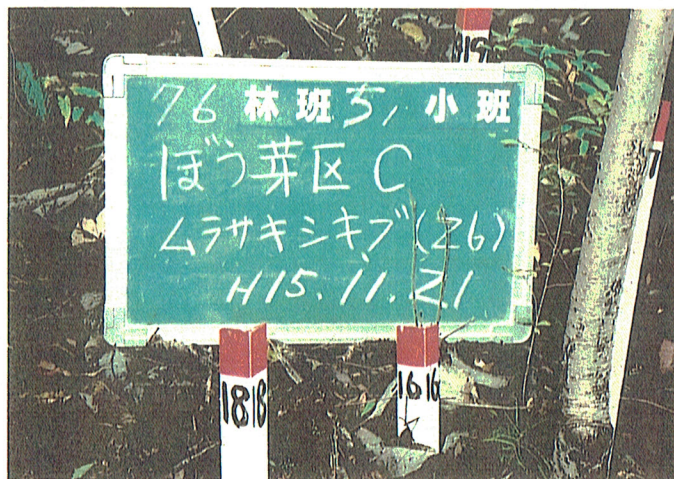 819
76 林班 ち, 小班
ぼう芽区 C
ムラサキシキブ(26)
H15.11.21
7
1818
1616